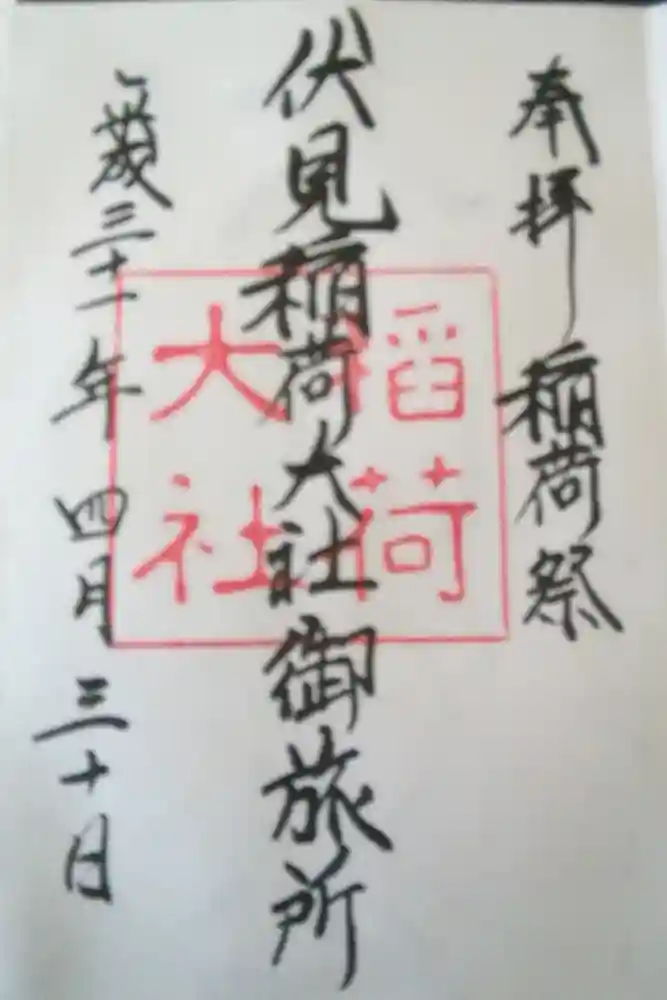 奉拝 稲荷祭
伏見稲荷大社御旅所
平成三十一年 四月 三十日
稲荷
大社